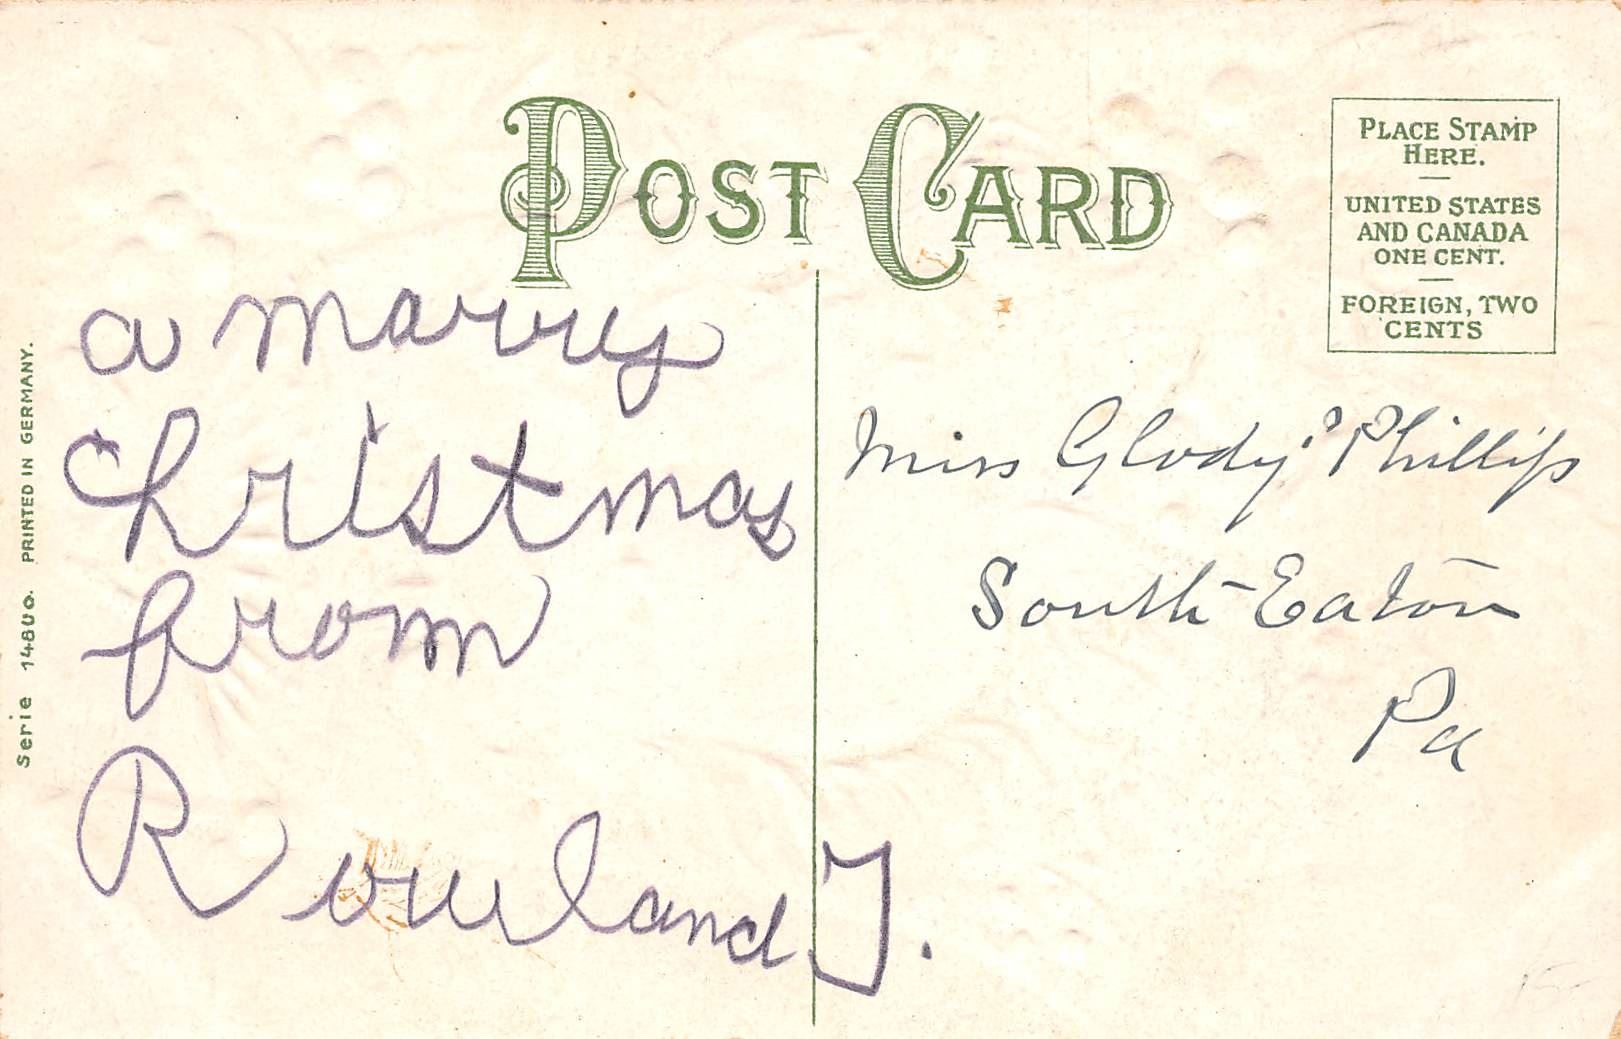 POST CARD
PLACE STAMP
HERE.
UNITED STATES
AND CANADA
ONE CENT.
FOREIGN, TWO
CENTS
Serie 1480o. PRINTED IN GERMANY.
a marry
christmas
from
Rowland T.
Miss Gladys Phillips
South Eaton
Pa